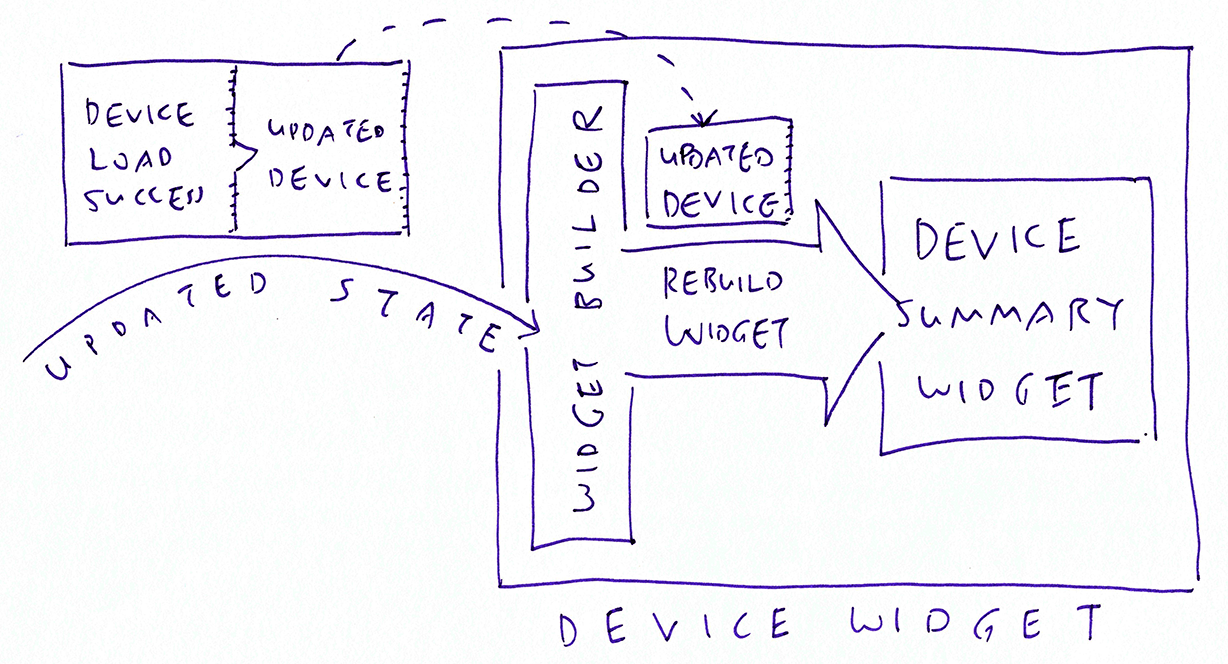 DEVICE
LOAD
SUCCESS
UPDATED
DEVICE
UPDATED STATE
WIDGET BUILDER
UPDATED
DEVICE
REBUILD
WIDGET
DEVICE
SUMMARY
WIDGET
DEVICE WIDGET